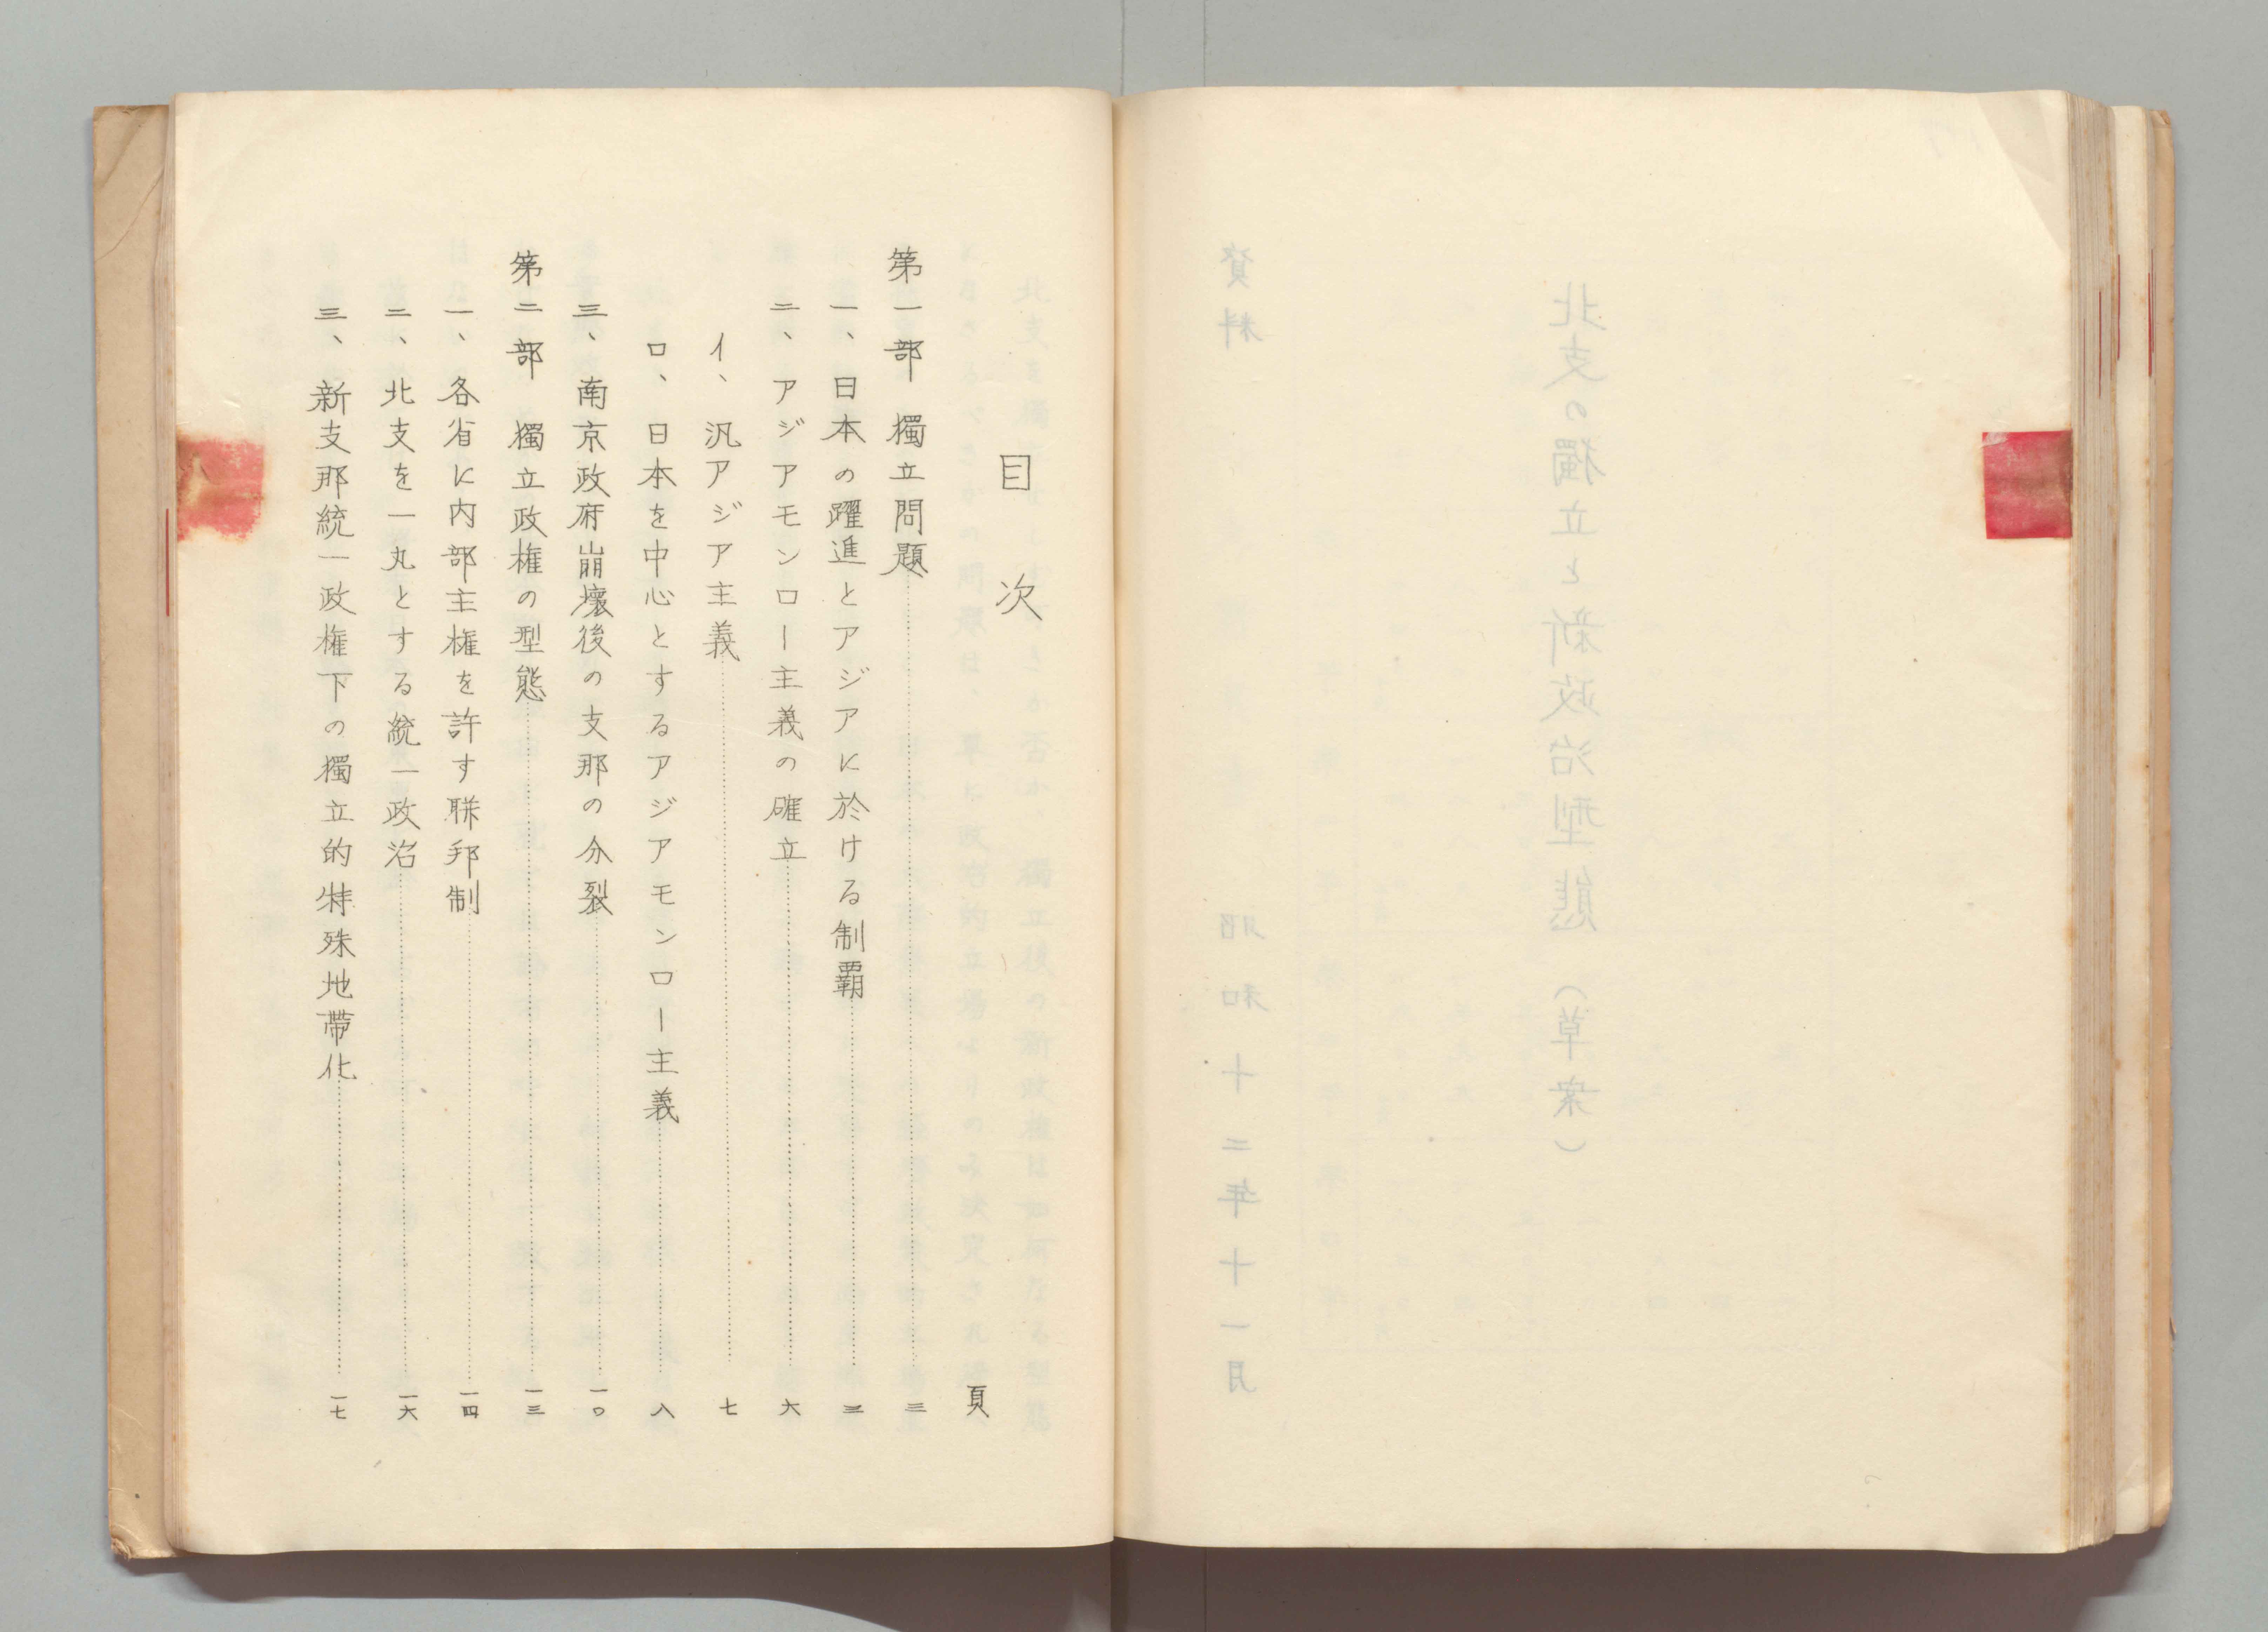 資料
北支の獨立と新政治型態（草案）
昭和十二年十一月
目次
頁
第一部 獨立問題 三
一、日本の躍進とアジアに於ける制覇 三
二、アジアモンロー主義の確立 六
イ、汎アジア主義 七
ロ、日本を中心とするアジアモンロー主義 八
三、南京政府崩壞後の支那の分裂 一〇
第二部 獨立政権の型態 一三
一、各省に内部主権を許す聯邦制 一四
二、北支を一丸とする統一政治 一六
三、新支那統一政権下の獨立的特殊地帶化 一七